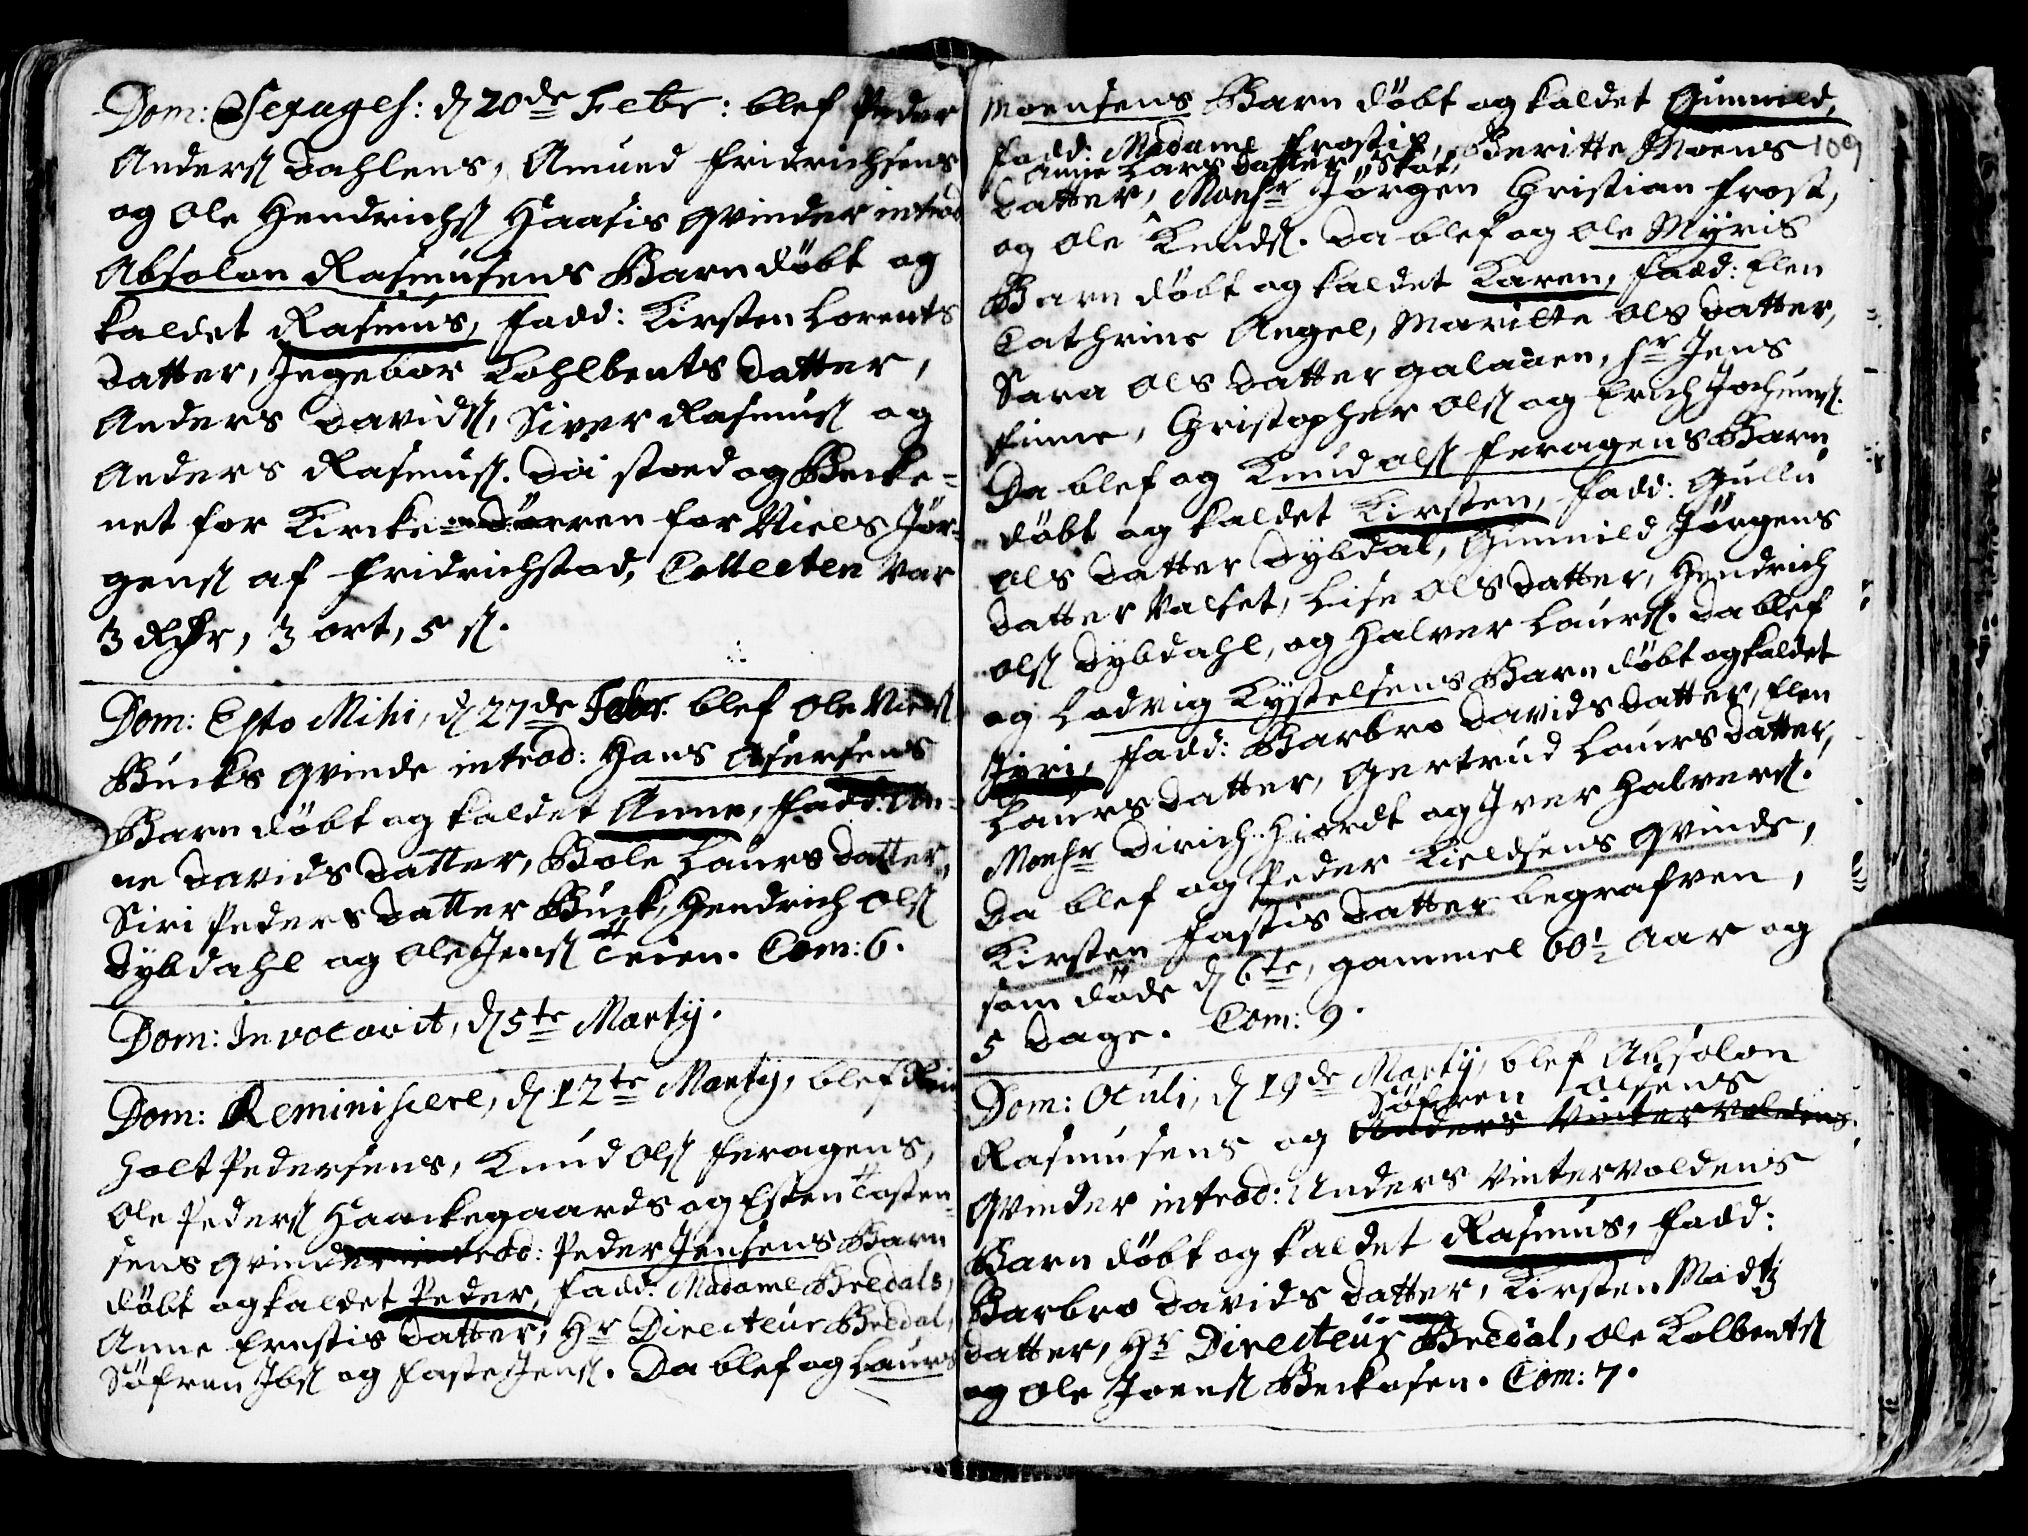 Dom: Sexages: d 20de Febr: blef Peder
Anders Dahlens, Amund Fridrichsens
og Ole Hendrichs Haasis qvinder introd
Absolon Rasmusens Barn døbt og
kaldet Rasmus, Fadd: Kirsten Lorents
datter, Ingebor Kohlbents datter,
Anders Davids, Siver Rasmus og
Anders Rasmus. Da stoed og Becke-
net for Kircke-dörren for Niels Jör-
gens af Fridrichstad, Collecten var
3 Rdr, 3 ort, 5 s.
Dom: Esto Mihi, d 27de Febr. blef Ole Niels
Bucks qvinde introd: Hans Asersens
Barn döbt og kaldet Anne, Fadd: An-
ne Davids datter, Bole Laurs datter,
Siri Peders datter Buck, Hendrich Ols
Dybdahl og Ole Jens Teien. Com: 6.
Dom: Invocavit, d 5te Martij.
Dom: Reminiscere, d 12te Martij, blef Rein
holt Pedersens, Knud Ols Feragens,
Ole Peders Haackegaards og Esten Tosten-
sens qvinder introd: Peder Jensens Barn
döbt og kaldet Peder, Fadd: Madame Bredals,
Anne Ernstis datter, Hr Directeur Bredal,
Söfren Ibs og Faste Jens. Da blef og Laurs
Moensens Barn döbt og kaldet Gunnild,
109
Fadd: Madame Frostis, Beritte Moens
Anne Lars datter Skot,
datter, Monsr Jörgen Christian Frost,
og Ole Knuds. Da blef og Ole Myris
Barn döbt og kaldet Karen, Fadd: Elen
Cathrine Angel, Maritte Ols datter,
Sara Ols datter Galaaen, Hr Jens
Finne, Christopher Ols og Erich Jochums.
Da blef og Knud Ols Feragens Barn
döbt og kaldet Kirsten, Fadd: Gullu
Ols datter Dybdal, Gunnild Jörgens
datter Valset, Lise Ols datter, Hendrich
Ols Dybdahl, og Halver Laurs. Da blef
og Lodvig Kystelsens Barn döbt og kaldet
Jyri, Fadd: Barbro Davids datter, Elen
Laurs datter, Gertrud Laurs datter,
Monsr Dirich Hiordt og Iver Halvers.
Da blef og Peder Kieldsens qvinde,
Kirsten Fastis datter begrafven,
som döde d 6te, gammel 60½ Aar og
5 dage. Com: 9.
Dom: Oculi, d 19de Martij, blef Absolon
Söfren Olsens
Rasmusens og Anders Vintervoldens
qvinder introd: Anders Vintervoldens
Barn döbt og kaldet Rasmus, Fadd:
Barbro Davids datter, Kirsten Madtz
datter, Hr Directeur Bredal, Ole Kolbents
og Ole Joens Beckosen. Com: 7.